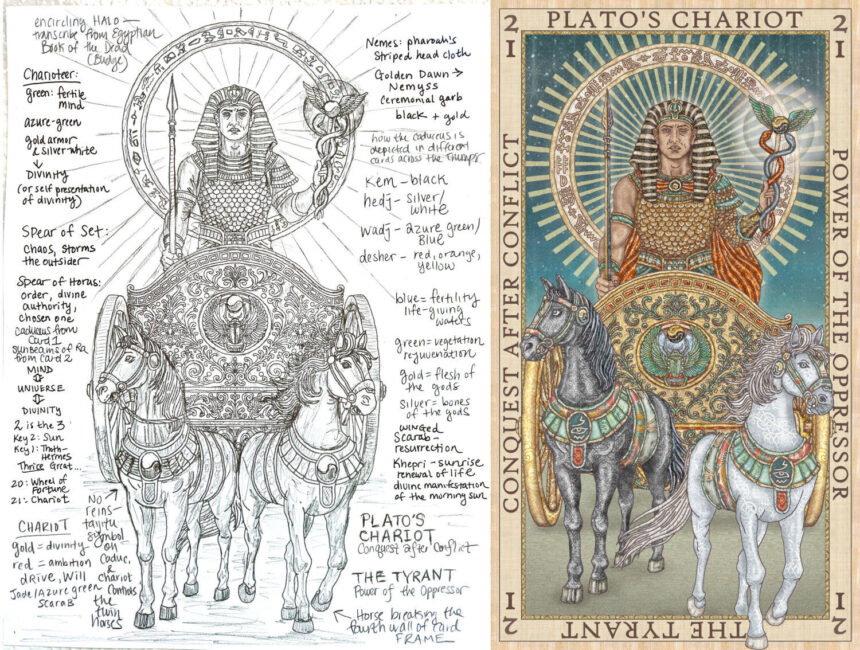 encircling HALO —
transcribe from Egyptian
Book of the Dead
(Budge)
Charioteer:
green: fertile
mind
azure-green
gold armor
& silver-white
↓
Divinity
(or self presentation
of divinity)
Spear of Set:
Chaos, storms
the outsider
Spear of Horus:
order, divine
authority,
chosen one
caduceus from
Card 1
sunbeams of Ra
from Card 2
MIND
UNIVERSE
DIVINITY
2 is the 3
Key 2: Sun
Key 1: Thoth-
Hermes
Thrice Great...
20: Wheel of
Fortune
21: Chariot
CHARIOT
gold = divinity
red = ambition
drive, Will
Jade/Azure green
Scarab
No
symbol
on
Caduc.
&
chariot
Controls
the
twin
horses
Nemes: pharoah's
Striped head cloth
Golden Dawn →
Nemyss
Ceremonial garb
black + gold
how the caduceus is
depicted in different
cards across the Trumps
Kem – black
hedj – silver/
white
wadj – azure green/
Blue
desher – red, orange,
yellow
blue = fertility
life-giving
waters
green = vegetation
rejuvenation
gold = flesh of
the gods
silver = bones
of the gods
winged
Scarab –
resurrection
Khepri – sunrise
renewal of life
divine manifestation
of the morning sun
PLATO'S
CHARIOT
Conquest after Conflict
THE TYRANT
Power of the Oppressor
Horse breaking the
fourth wall of card
FRAME
21
PLATO'S CHARIOT
21
CONQUEST AFTER CONFLICT
POWER OF THE OPPRESSOR
THE TYRANT
21
21